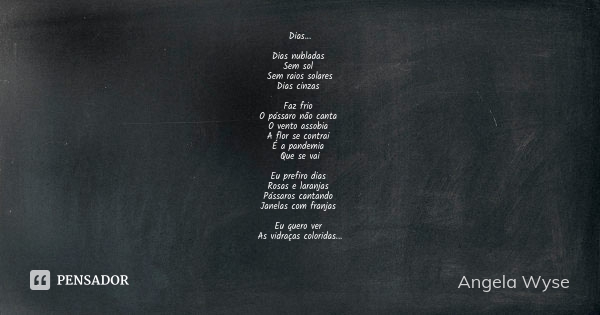 Dias...
Dias nubladas
Sem sol
Sem raios solares
Dias cinzas
Faz frio
O pássaro não canta
O vento assobia
A flor se contrai
É a pandemia
Que se vai
Eu prefiro dias
Rosas e laranjas
Pássaros cantando
Janelas com franjas
Eu quero ver
As vidraças coloridas...
PENSADOR
Angela Wyse